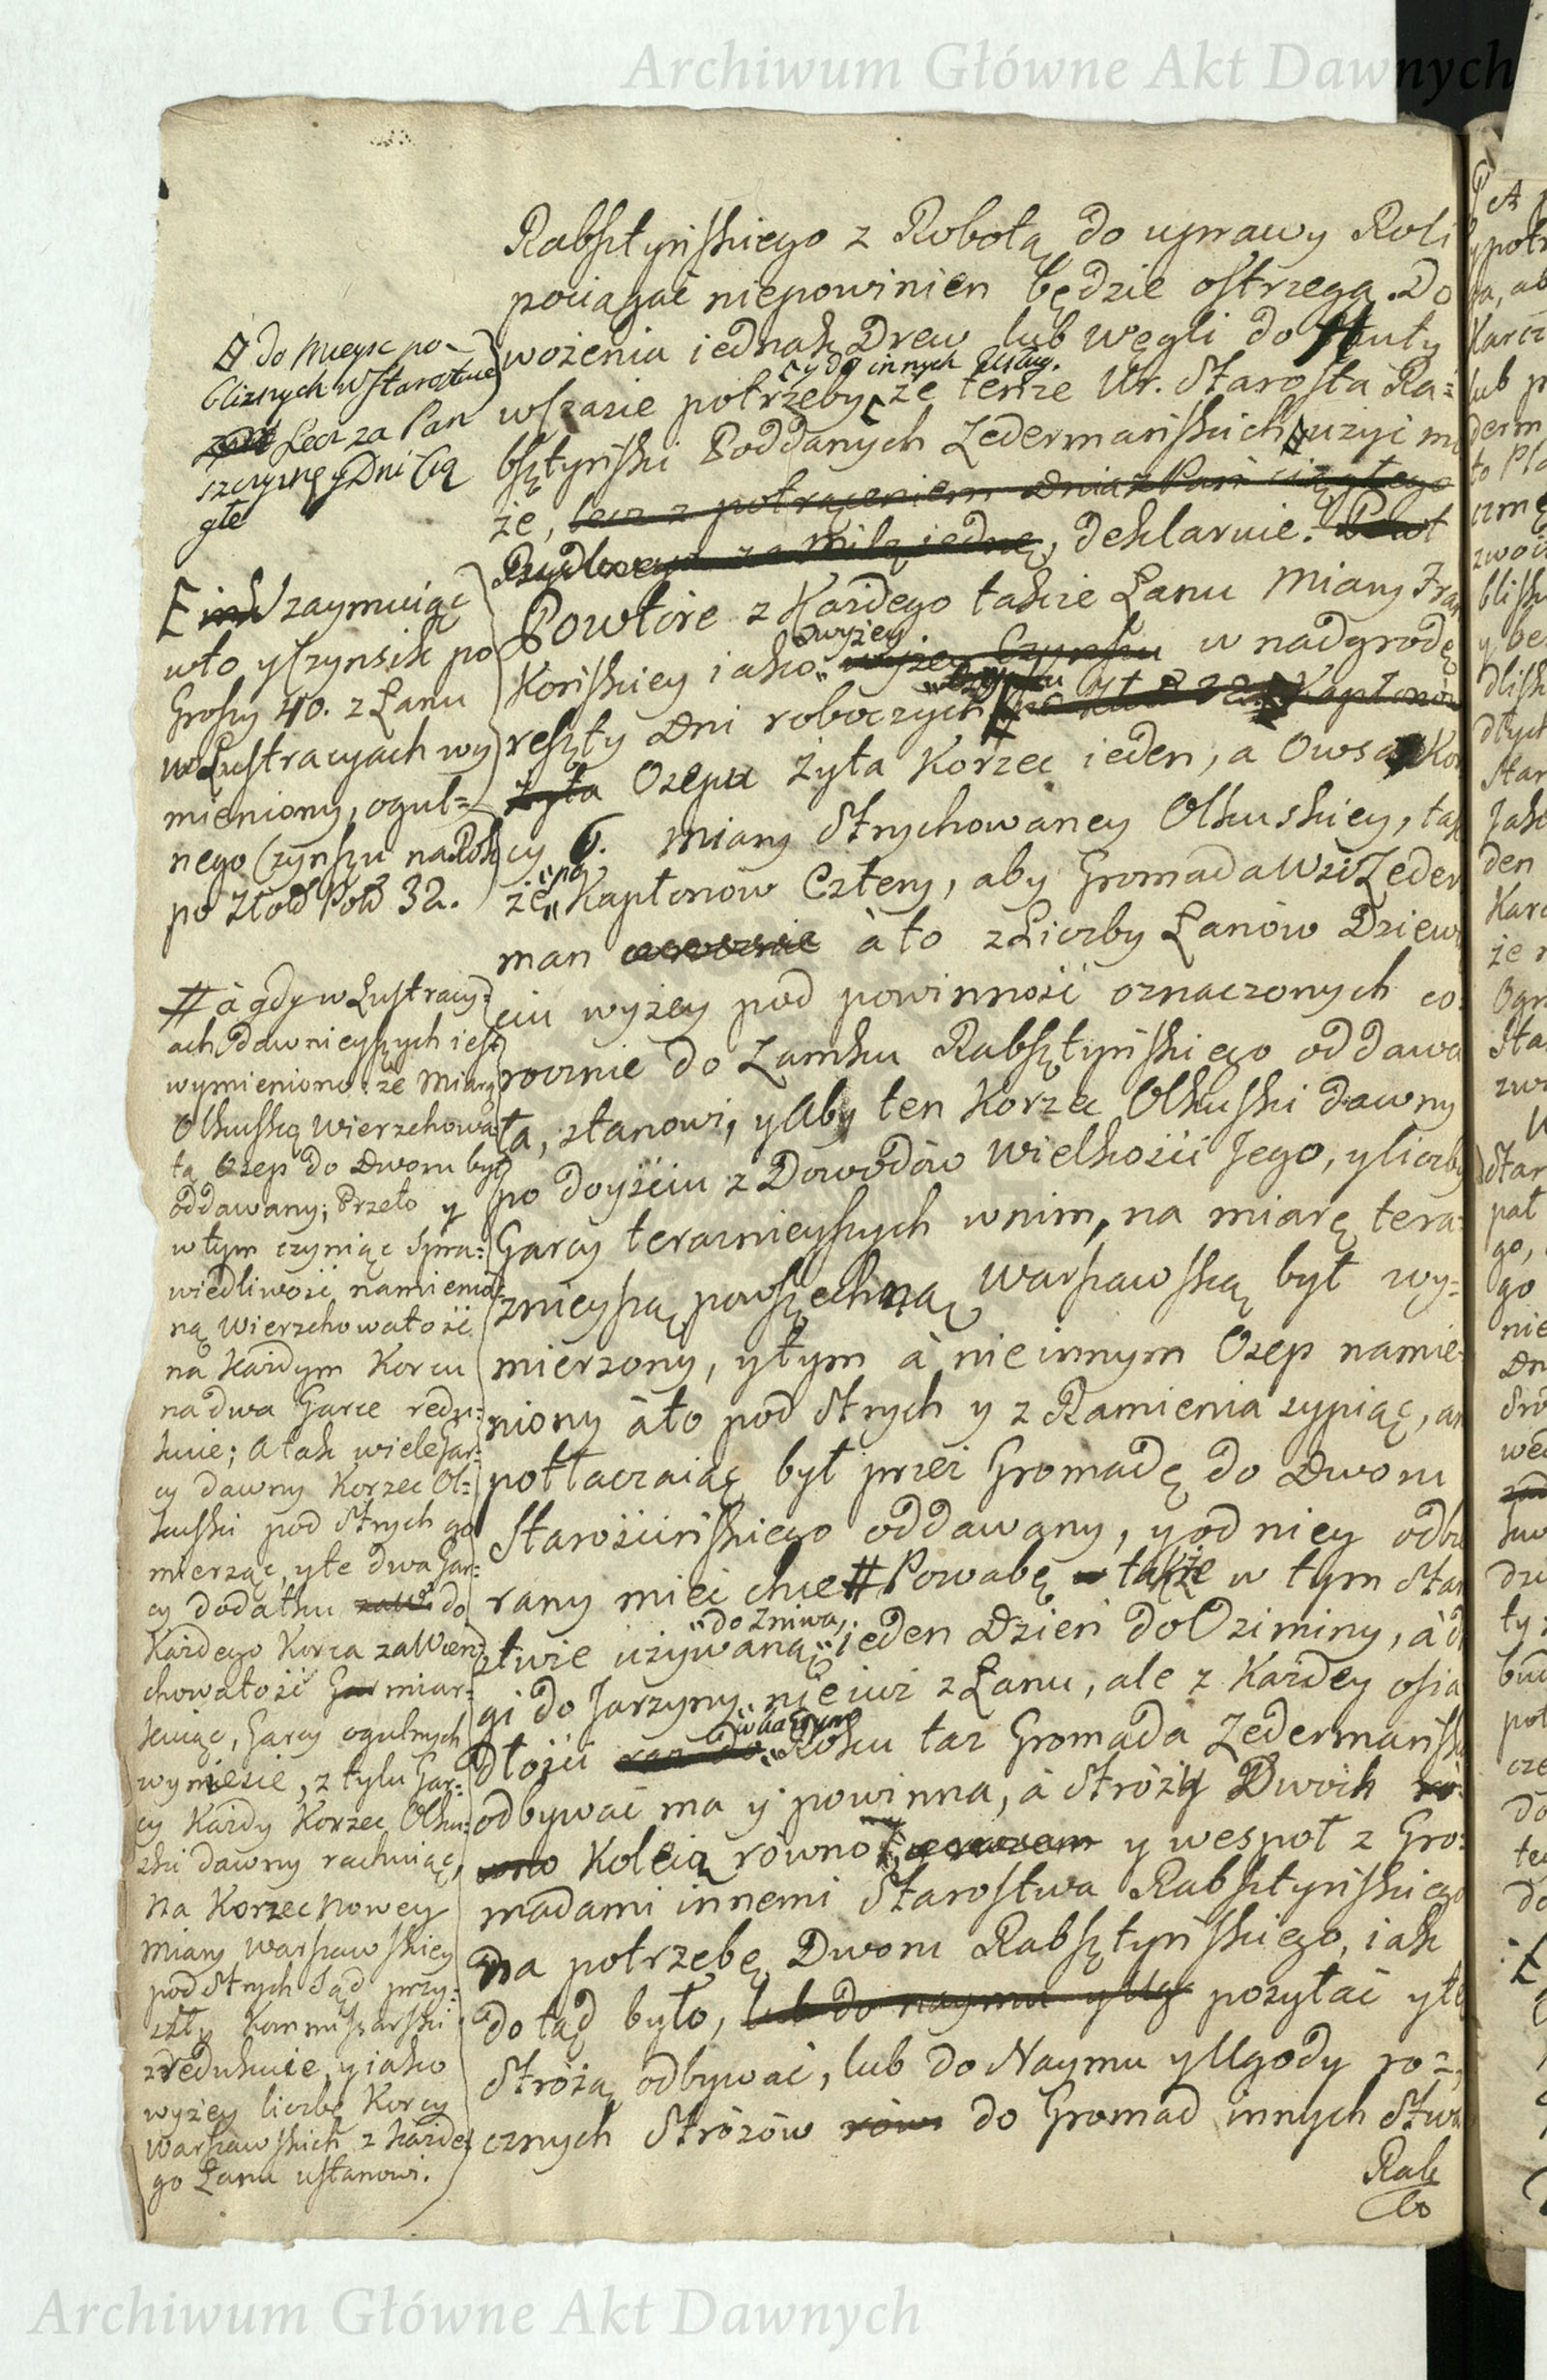 Archiwum Główne Akt Dawnych
Rabsztyńskiego z Robotą do uprawy Roli
pociągać niepowinien będzie ostrzega. Do
wożenia iednak Drew lub węgli do Huty
y do innych Usług.
wczasie potrzeby że tenże Ur. Starosta Ra=
bsztyński Poddanych Zedermańskich użyć mo
że, lecz z potrąceniem Dnia z Pań ciągłego
Bydlnego za milę iednę, deklaruie.
Powtóre z Każdego takie Łanu Miary Fran
wyżey
Końskiey iako wyżey Czynszu w nadgrodę
Czynszu
reszty Dni roboczych Kapłonów
żyta Ozepu żyta Korzec ieden, a Owsa Kor
cy 6. miary Strychowaney Olkuskiey, tak
no
że Kapłonów Cztery, aby Gromada Wsi Zeder
man à to z Liczby Łanów Dziewi
ciu wyżey pod powinność oznaczonych co=
rocznie do Zamku Rabsztyńskiego oddawa
ła, stanowi, y Aby ten Korzec Olkuski dawny
po doyściu z Dowodów wielkości Jego, y liczby
Garcy teraznieyszych wnim, na miarę tera=
znieyszą powszechną Warszawską był wy=
mierzony, y tym à nie innym Ozep namie=
niony àto pod Strych y z Ramienia sypiąc, an
potłaczaiąc był przez Gromadę do Dworu
Starościńskiego oddawany, y od niey odbie
rany mieć chce # Powabę także w tym Star
do Zniwa,
stwie używaną ieden Dzień do Oziminy, à dr
gi do Jarzyny nie iuż z Łanu, ale z Każdey osia
w każdym
dłości raz do Roku taz Gromada Zedermańska
odbywać ma y powinna, à Stróży Dwóch ró=
wno Koleią równo y wespoł z Gro=
madami innemi Starostwa Rabsztyńskiego
Na potrzebę Dworu Rabsztyńskiego, iak
do tąd było, lub do naymu y Ug posyłać y tę
Stróżą odbywać, lub do Naymu y Ugody ro=
cznych Stróżów rów do Gromad innych Stwa
Rab
do Mieysc po-
bliznych w Starostwie
Lecz za Pan
szczyznę y Dni cią
głe
zaymuiąc
wto y Czynsik po
Groszy 40. z Łanu
w Lustracyach wy
mieniony, ogul=
nego Czynszu na Rok
po Złotd Pold 32.
# à gdy w Lustracy=
ach Dawnieyszych iest
wymieniono: że Miarą
Olkuską Wierzchowa
tą Ozep do Dworu był
oddawany; Przeto y
w tym czyniąc Spra=
wiedliwość namienio
ną Wierzchowatość
na każdym Korcu
na dwa Garce redu=
kuie; A tak wiele Gar=
cy dawny Korzec Ol=
kuski pod Strych go
mierząc, y te dwa Gar=
cy dodatku zawi do
Każdego Korca za Wierz
chowatość Gar miar=
kuiąc, Garcy ogulnych
wyniesie, z tylu Gar=
cy Każdy Korzec Olku=
ski dawny rachuiąc,
Na Korzec nowey
miary Warszawskiey
pod Strych Sąd przy=
szły Kommissarski
zredukuie, y iako
wyżey liczbę Korcy
Warszawskich z każde=
go Łanu ustanowi.
Archiwum Główne Akt Dawnych